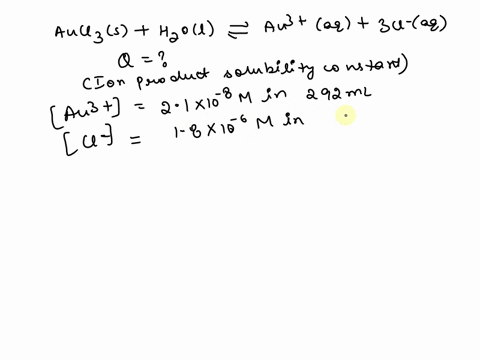 AuCl3(s) + H2O(l) ⇌ Au3+ (aq) + 3Cl-(aq)
Q = ?
CIon product solubility constant)
[Au3+] = 2.1×10-8 M in 292 mL
[Cl-] = 1.8×10-6 M in